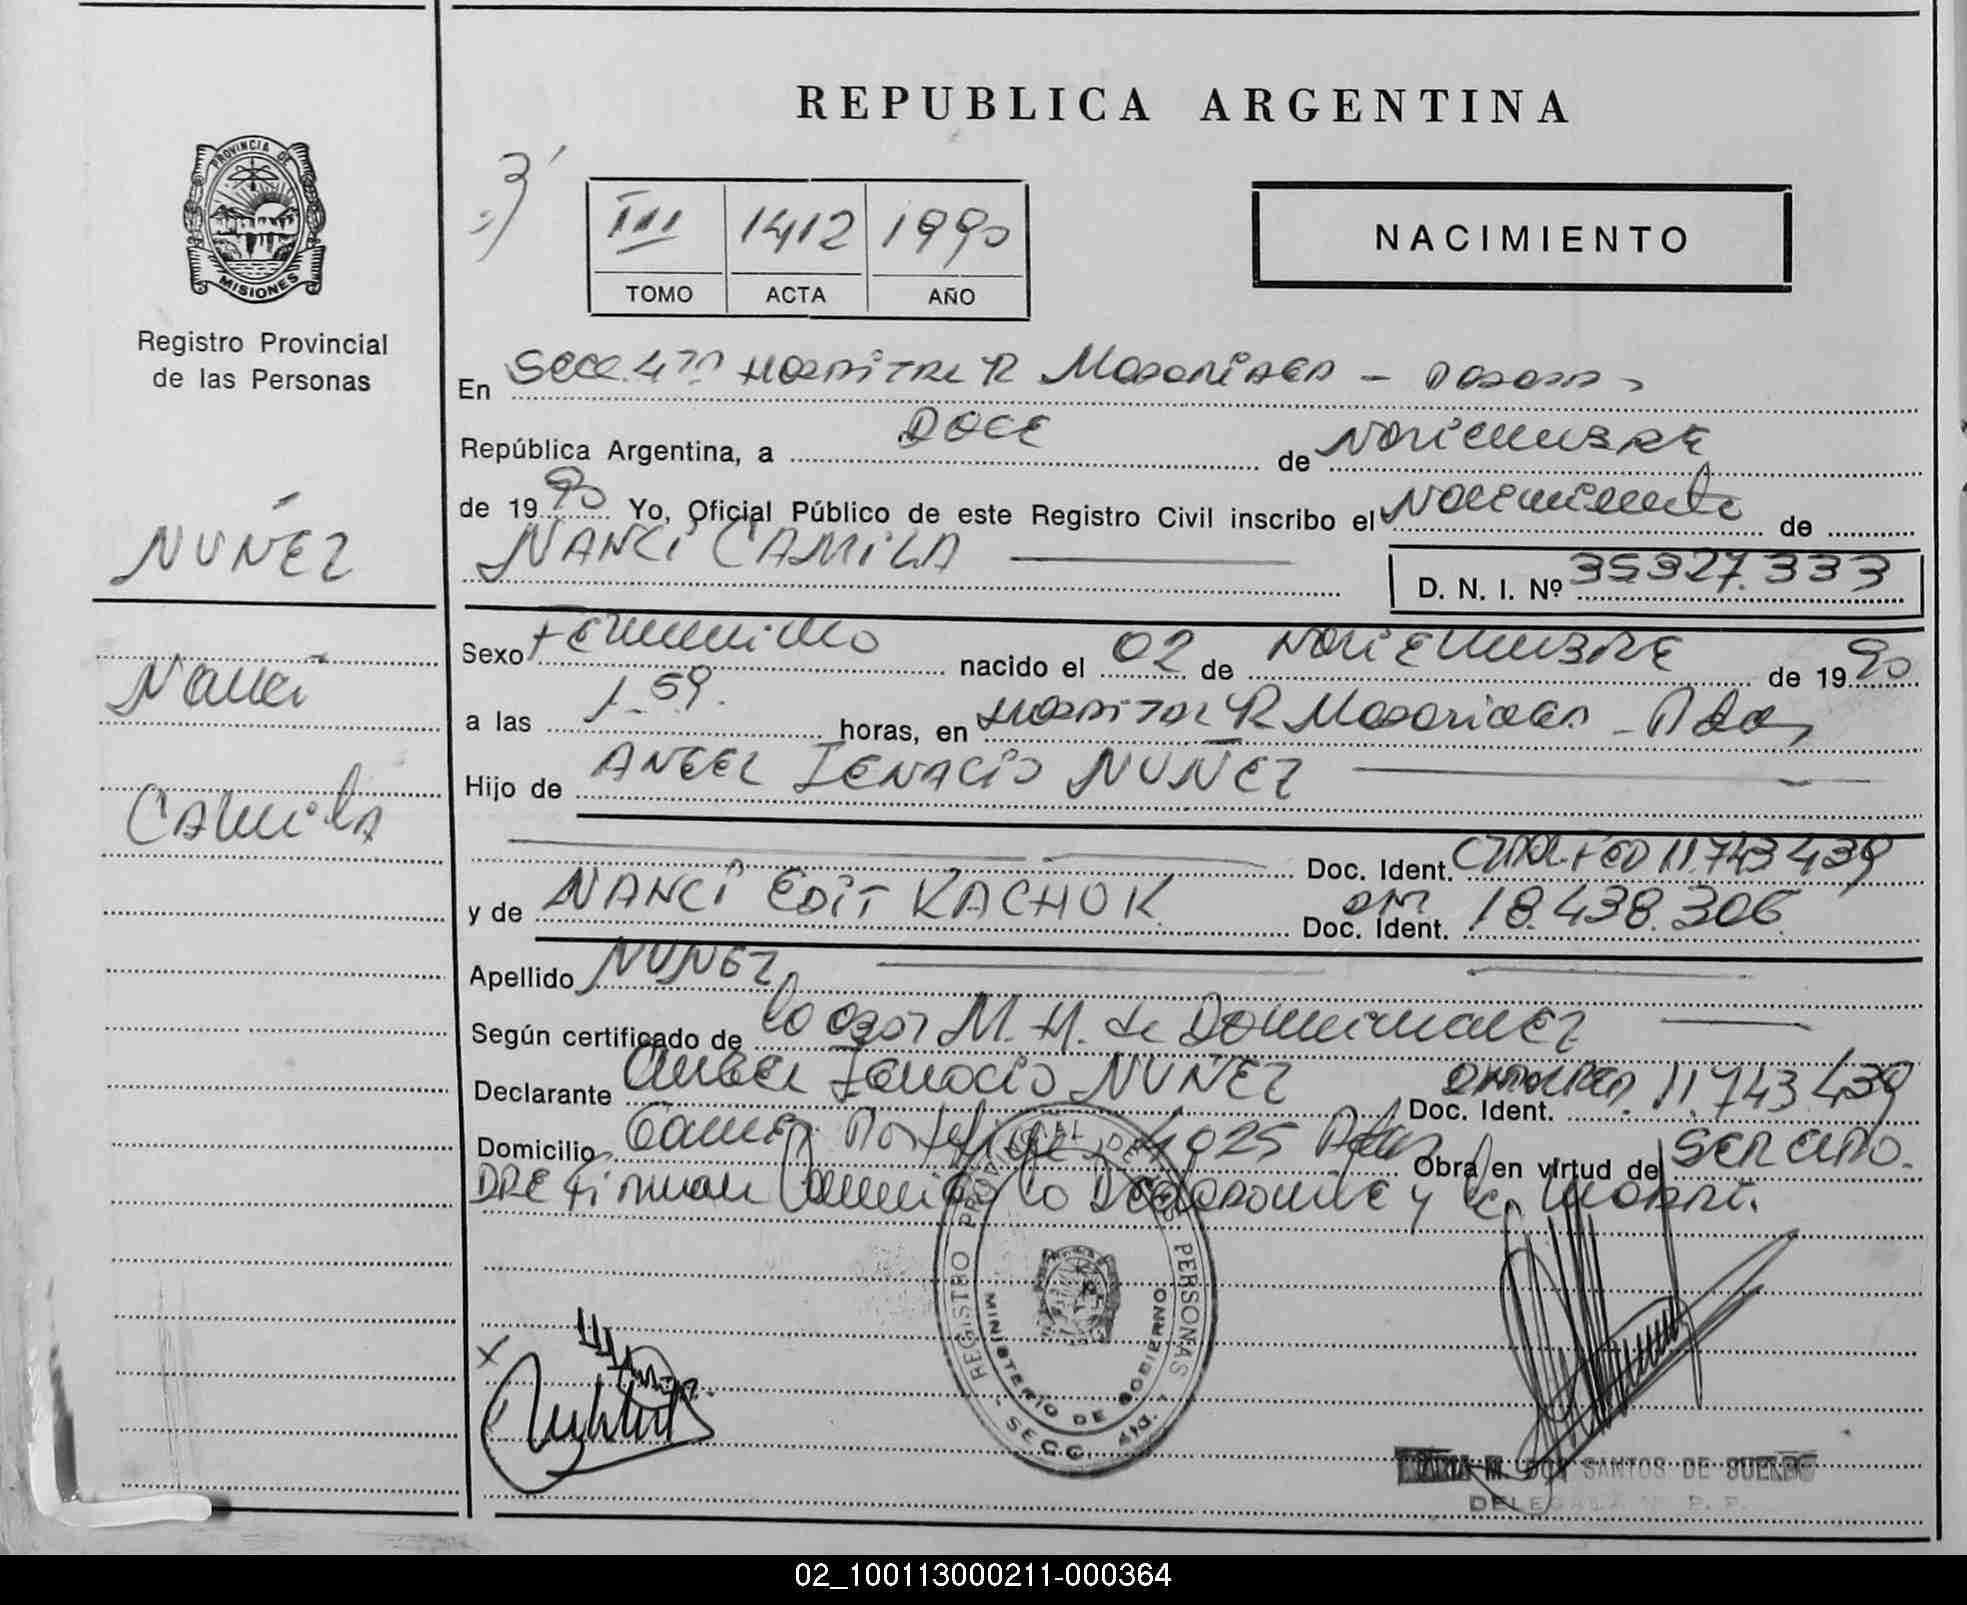 REPUBLICA ARGENTINA
PROVINCIA DE
MISIONES
Registro Provincial
de las Personas
III 1412 1990
TOMO ACTA AÑO
NACIMIENTO
En Secc. 4ta Hospital R Madariaga - Posadas
República Argentina, a DOCE de NOVIEMBRE
de 1990 Yo, Oficial Público de este Registro Civil inscribo el Nacimiento de
NANCI CAMILA D. N. I. Nº 35327.333
NUÑEZ
Nanci
Camila
Sexo Femenino nacido el 02 de NOVIEMBRE de 1990
a las 1.59. horas, en Hospital R Madariaga - Pdas
Hijo de ANGEL IGNACIO NUÑEZ
Doc. Ident. 11.743.439
y de NANCI EDIT KACHUK Doc. Ident. 18.438.306
Apellido NUÑEZ
Según certificado de la M. M. de Domínguez
Declarante Angel Ignacio NUÑEZ Doc. Ident. 11.743.439
Domicilio 4025 Pdas Obra en virtud de ser el PA.
DRE Firman Conmigo la Declarante y la Madre.
REGISTRO PROVINCIAL DE LAS PERSONAS
MINISTERIO DE GOBIERNO
- SECC. 4ta. -
M. DOS SANTOS DE
DELEGADA R. P. P.
02_100113000211-000364